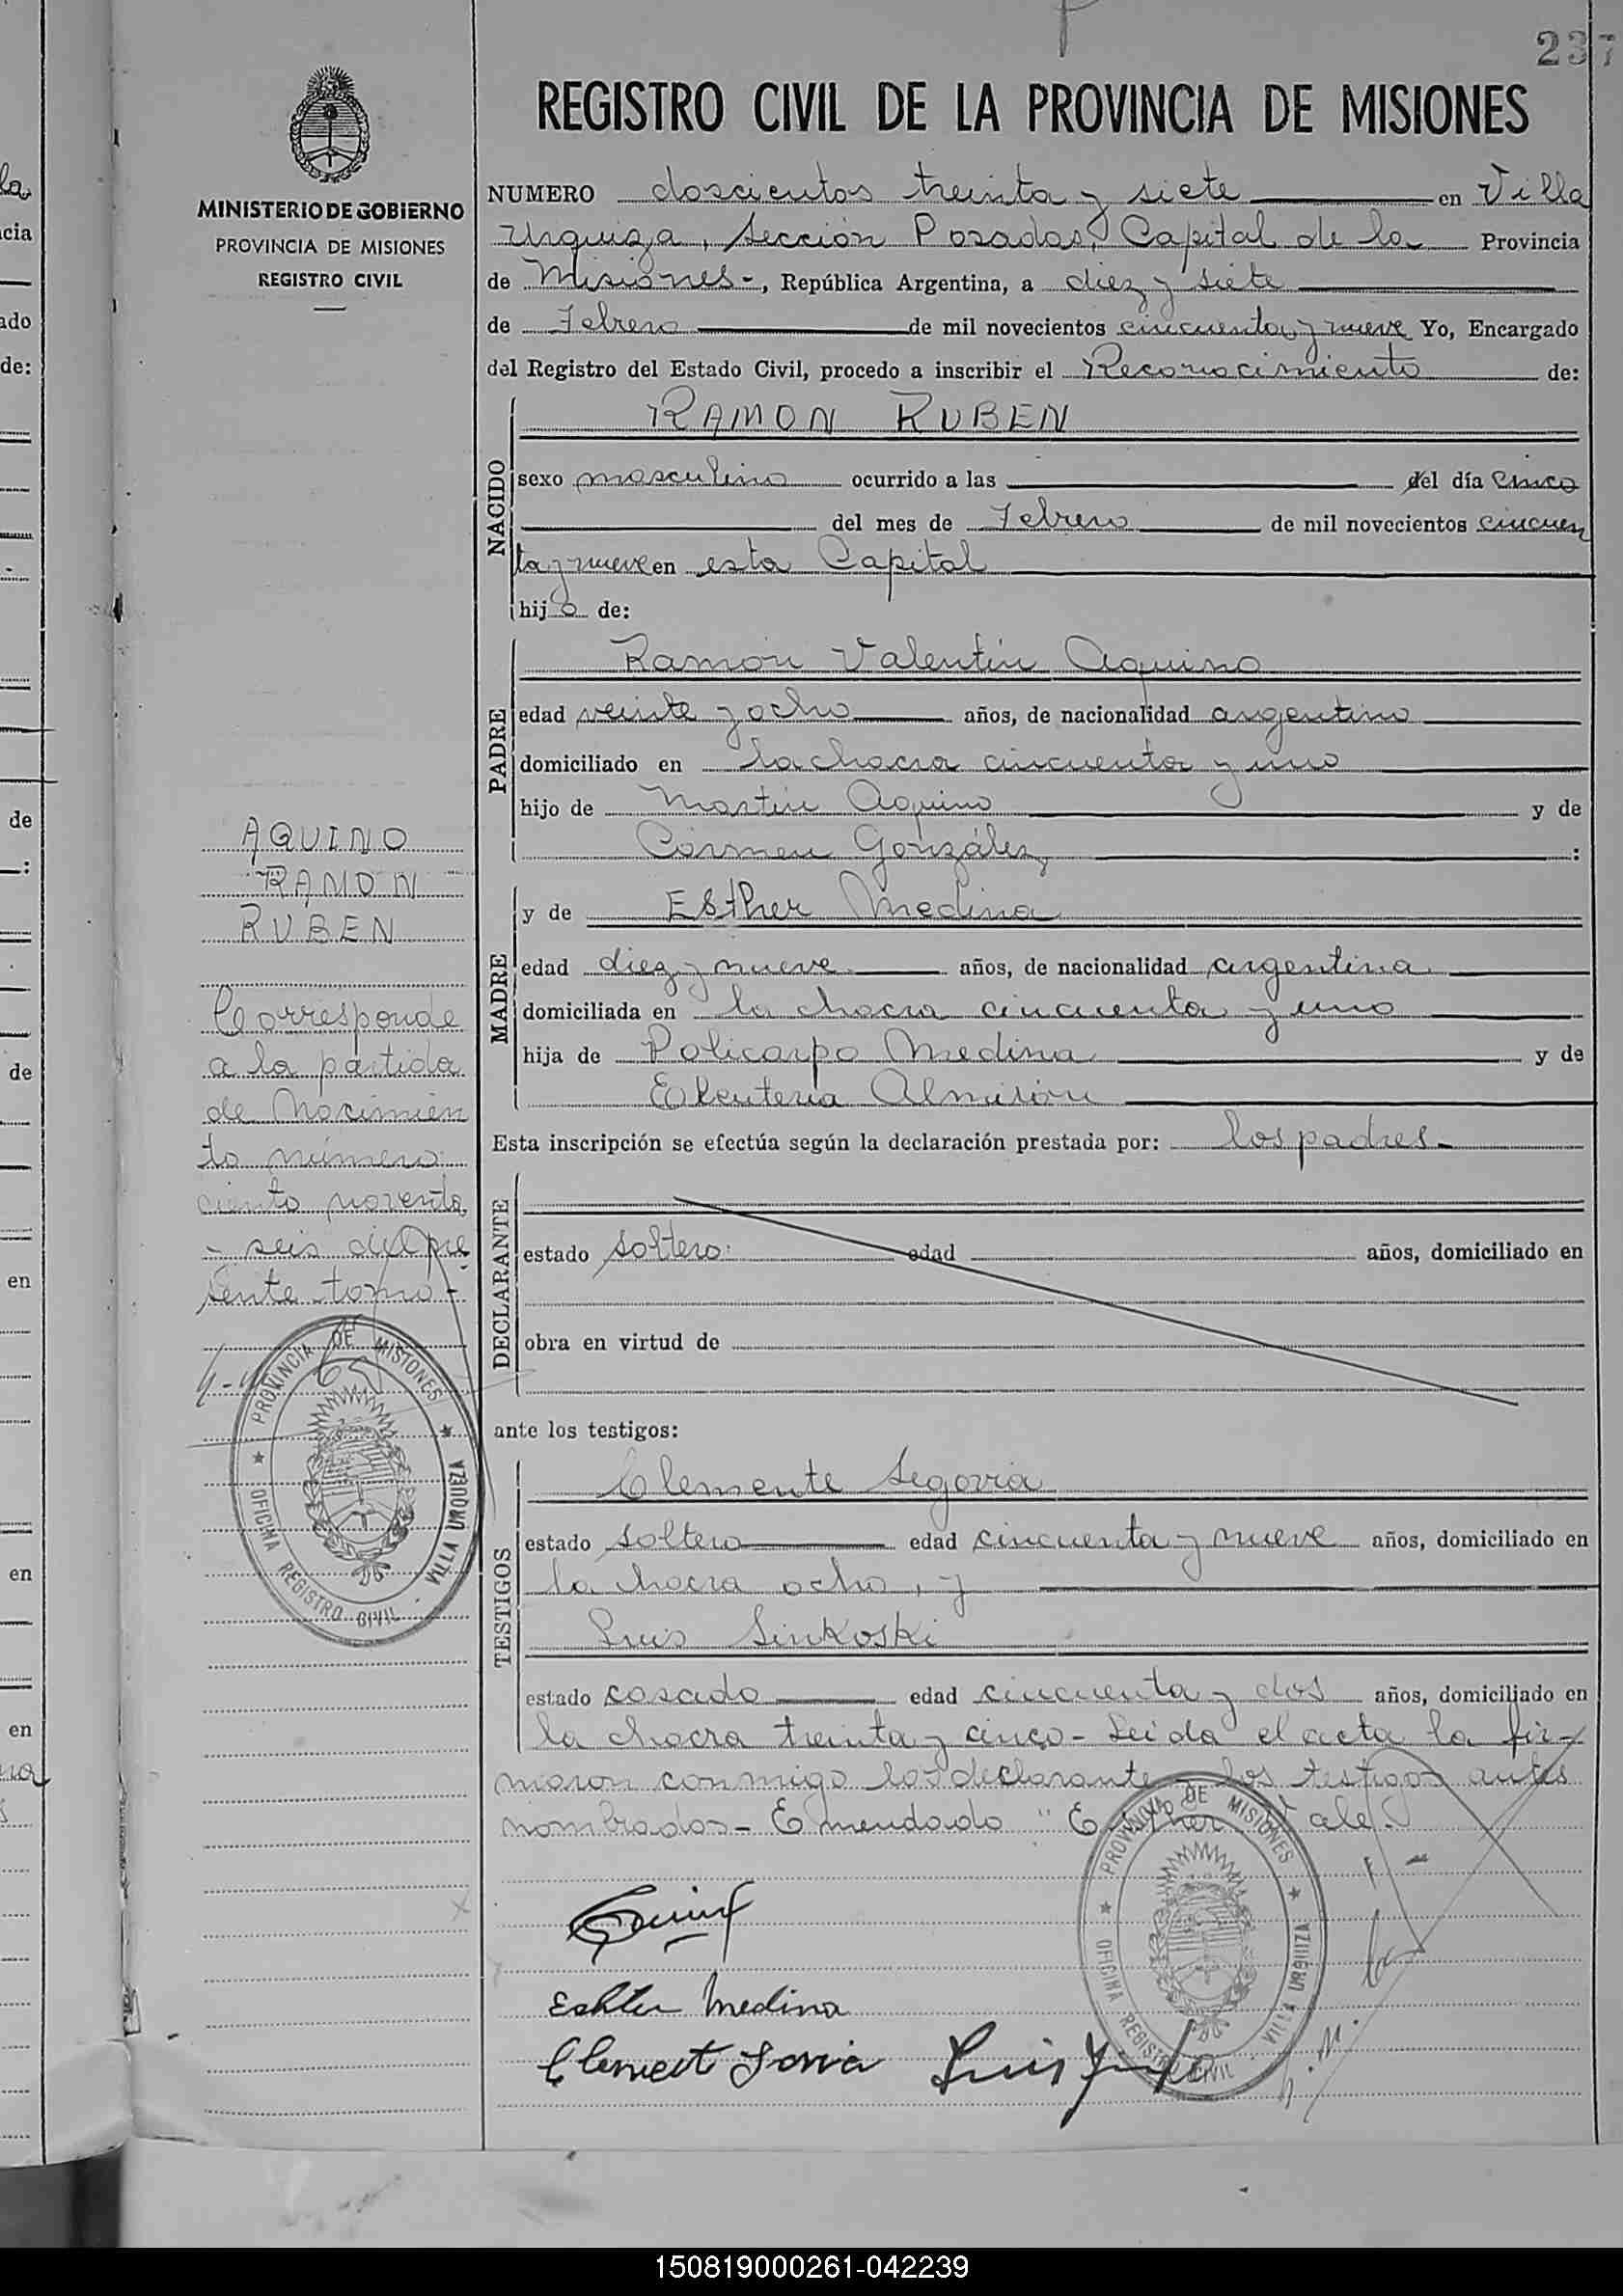 237
REGISTRO CIVIL DE LA PROVINCIA DE MISIONES
MINISTERIO DE GOBIERNO
PROVINCIA DE MISIONES
REGISTRO CIVIL
NUMERO doscientos treinta y siete en Villa
Urquiza, Sección Posadas, Capital de la Provincia
de Misiones-, República Argentina, a diez y siete
de Febrero de mil novecientos cincuenta y nueve Yo, Encargado
del Registro del Estado Civil, procedo a inscribir el Reconocimiento de:
NACIDO
RAMON RUBEN
sexo masculino ocurrido a las del día cinco
del mes de Febrero de mil novecientos cincuen
ta y nueve en esta Capital
hijo de:
PADRE
Ramón Valentín Aquino
edad veinte y ocho años, de nacionalidad argentino
domiciliado en la chacra cincuenta y uno
hijo de Martín Aquino y de
Cármen González :
MADRE
y de Esther Medina
edad diez y nueve años, de nacionalidad argentina
domiciliada en la chacra cincuenta y uno
hija de Policarpo Medina y de
Eleuteria Almirón
Esta inscripción se efectúa según la declaración prestada por: los padres-
DECLARANTE
estado soltero edad años, domiciliado en
obra en virtud de
ante los testigos:
TESTIGOS
Clemente Segovia
estado soltero edad cincuenta y nueve años, domiciliado en
la chacra ocho, y
Luis Sinkoski
estado casado edad cincuenta y dos años, domiciliado en
la chacra treinta y cinco- Leída el acta la fir-
maron conmigo los declarante y los testigos antes
nombrados- Emendado "Esther" Vale.
Eshter Medina
Luis
PROVINCIA DE MISIONES
OFICINA REGISTRO CIVIL
VILLA URQUIZA
AQUINO
RAMON
RUBEN
Corresponde
a la partida
de Nacimien
to número
ciento noventa
y seis del pre
sente tomo-
PROVINCIA DE MISIONES
OFICINA REGISTRO CIVIL
VILLA URQUIZA
la
cia
ado
de:
de
:
de
en
en
en
150819000261-042239